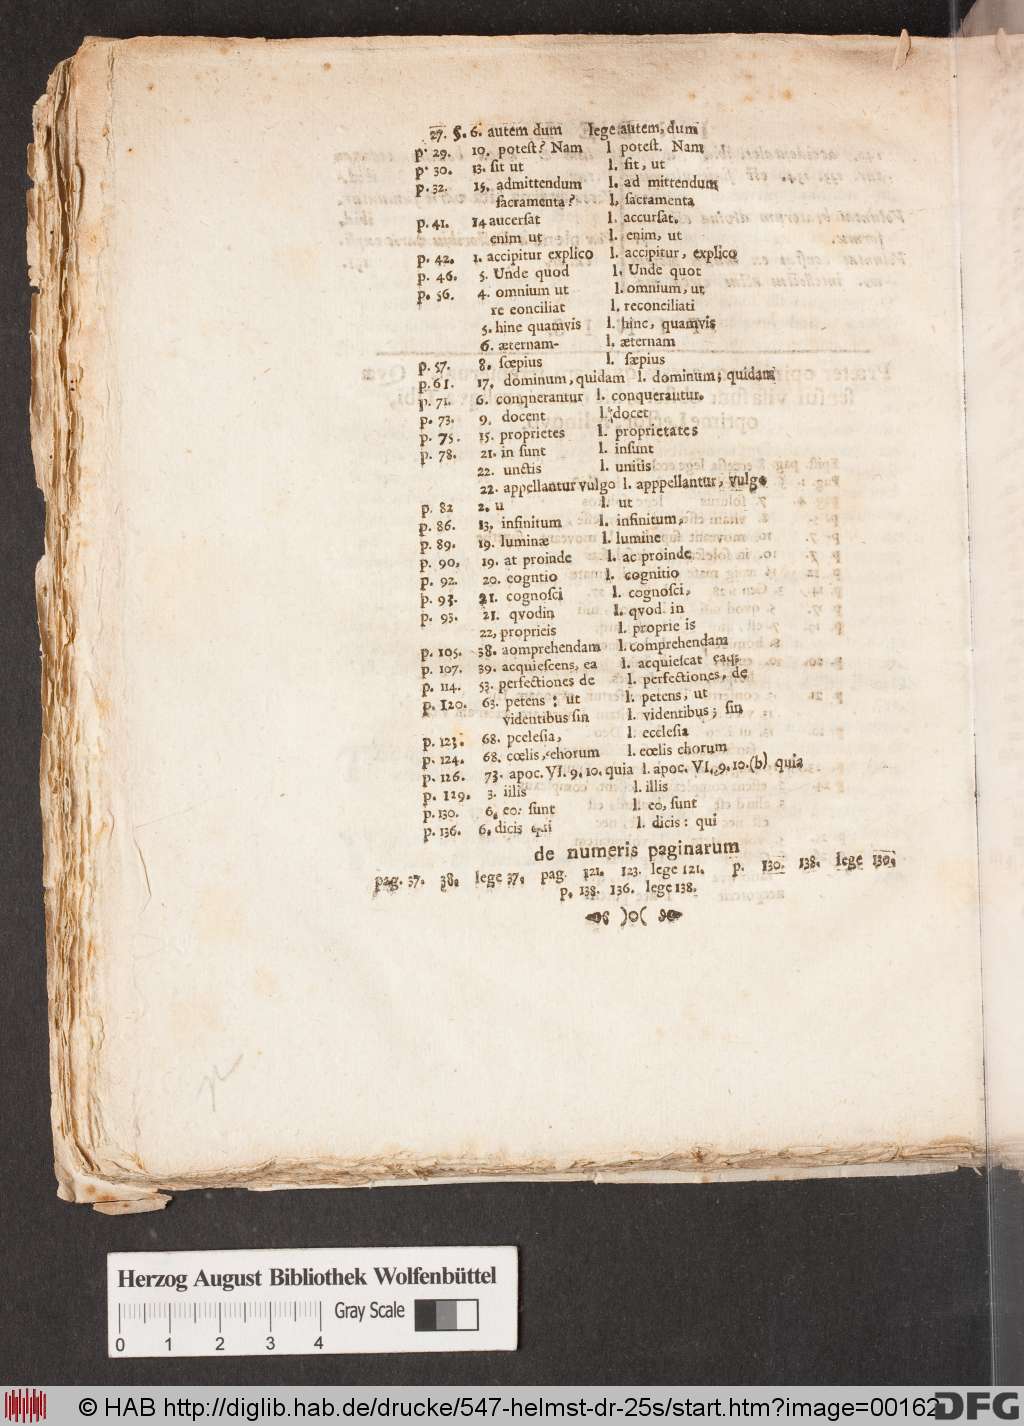 27. §. 6. autem dum lege autem, dum
p. 29. 10. poteſt? Nam l poteſt. Nam
p. 30. 13. ſit ut l. ſit, ut
p. 32. 15. admittendum l. ad mittendum
ſacramenta? l, ſacramenta
p. 41. 14 aucerſat l. accurſat.
enim ut l. enim, ut
p. 42. 1. accipitur explico l. accipitur, explico
p. 46. 5. Unde quod l. Unde quot
p. 56. 4. omnium ut l. omnium, ut
re eonciliat l. reconciliati
5. hine quamvis l. hinc, quamvis
6. æternam- l. æternam
p. 57. 8. ſœpius l. ſæpius
p. 61. 17. dominum, quidam l. dominum; quidam
p. 71. 6. conqnerantur l. conquerantur.
p. 73. 9. docent l. docet
p. 75. 15. proprietes l. proprietates
p. 78. 21. in ſunt l. inſunt
22. unctis l. unitis
22. appellantur vulgo l. apppellantur, vulgo
p. 82 2. u l. ut
p. 86. 13. infinitum l. infinitum,
p. 89. 19. luminæ l. lumine
p. 90, 19. at proinde l. ac proinde
p. 92. 20. cogntio l. cognitio
p. 93. 21. cognoſci l. cognoſci,
p. 95. 21. qvodin l. qvod in
22, proprieis l. proprie is
p. 105. 38. aomprehendam l. comprehendam
p. 107. 39. acquieſcens, ea l. acquieſcat eaq;
p. 114. 53. perfectiones de l. perfectiones, de
p. 120. 63. petens : ut l. petens, ut
videntibus ſin l. videntibus; ſin
p. 123. 68. pcleſia, l. eccleſia
p. 124. 68. cœlis, chorum l. cœlis chorum
p. 126. 73. apoc. VI. 9. 10. quia l. apoc. VI. 9. 10. (b) quia
p. 129. 3. iilis l. illis
p. 130. 6. eo: ſunt l. eo, ſunt
p. 136. 6. dicis qui l. dicis: qui
de numeris paginarum
pag. 37. 38. lege 37. pag. 121. 123. lege 121. p. 130. 138. lege 130.
p. 138. 136. lege 138.
Herzog August Bibliothek Wolfenbüttel
Gray Scale
0 1 2 3 4
© HAB http://diglib.hab.de/drucke/547-helmst-dr-25s/start.htm?image=00162
DFG